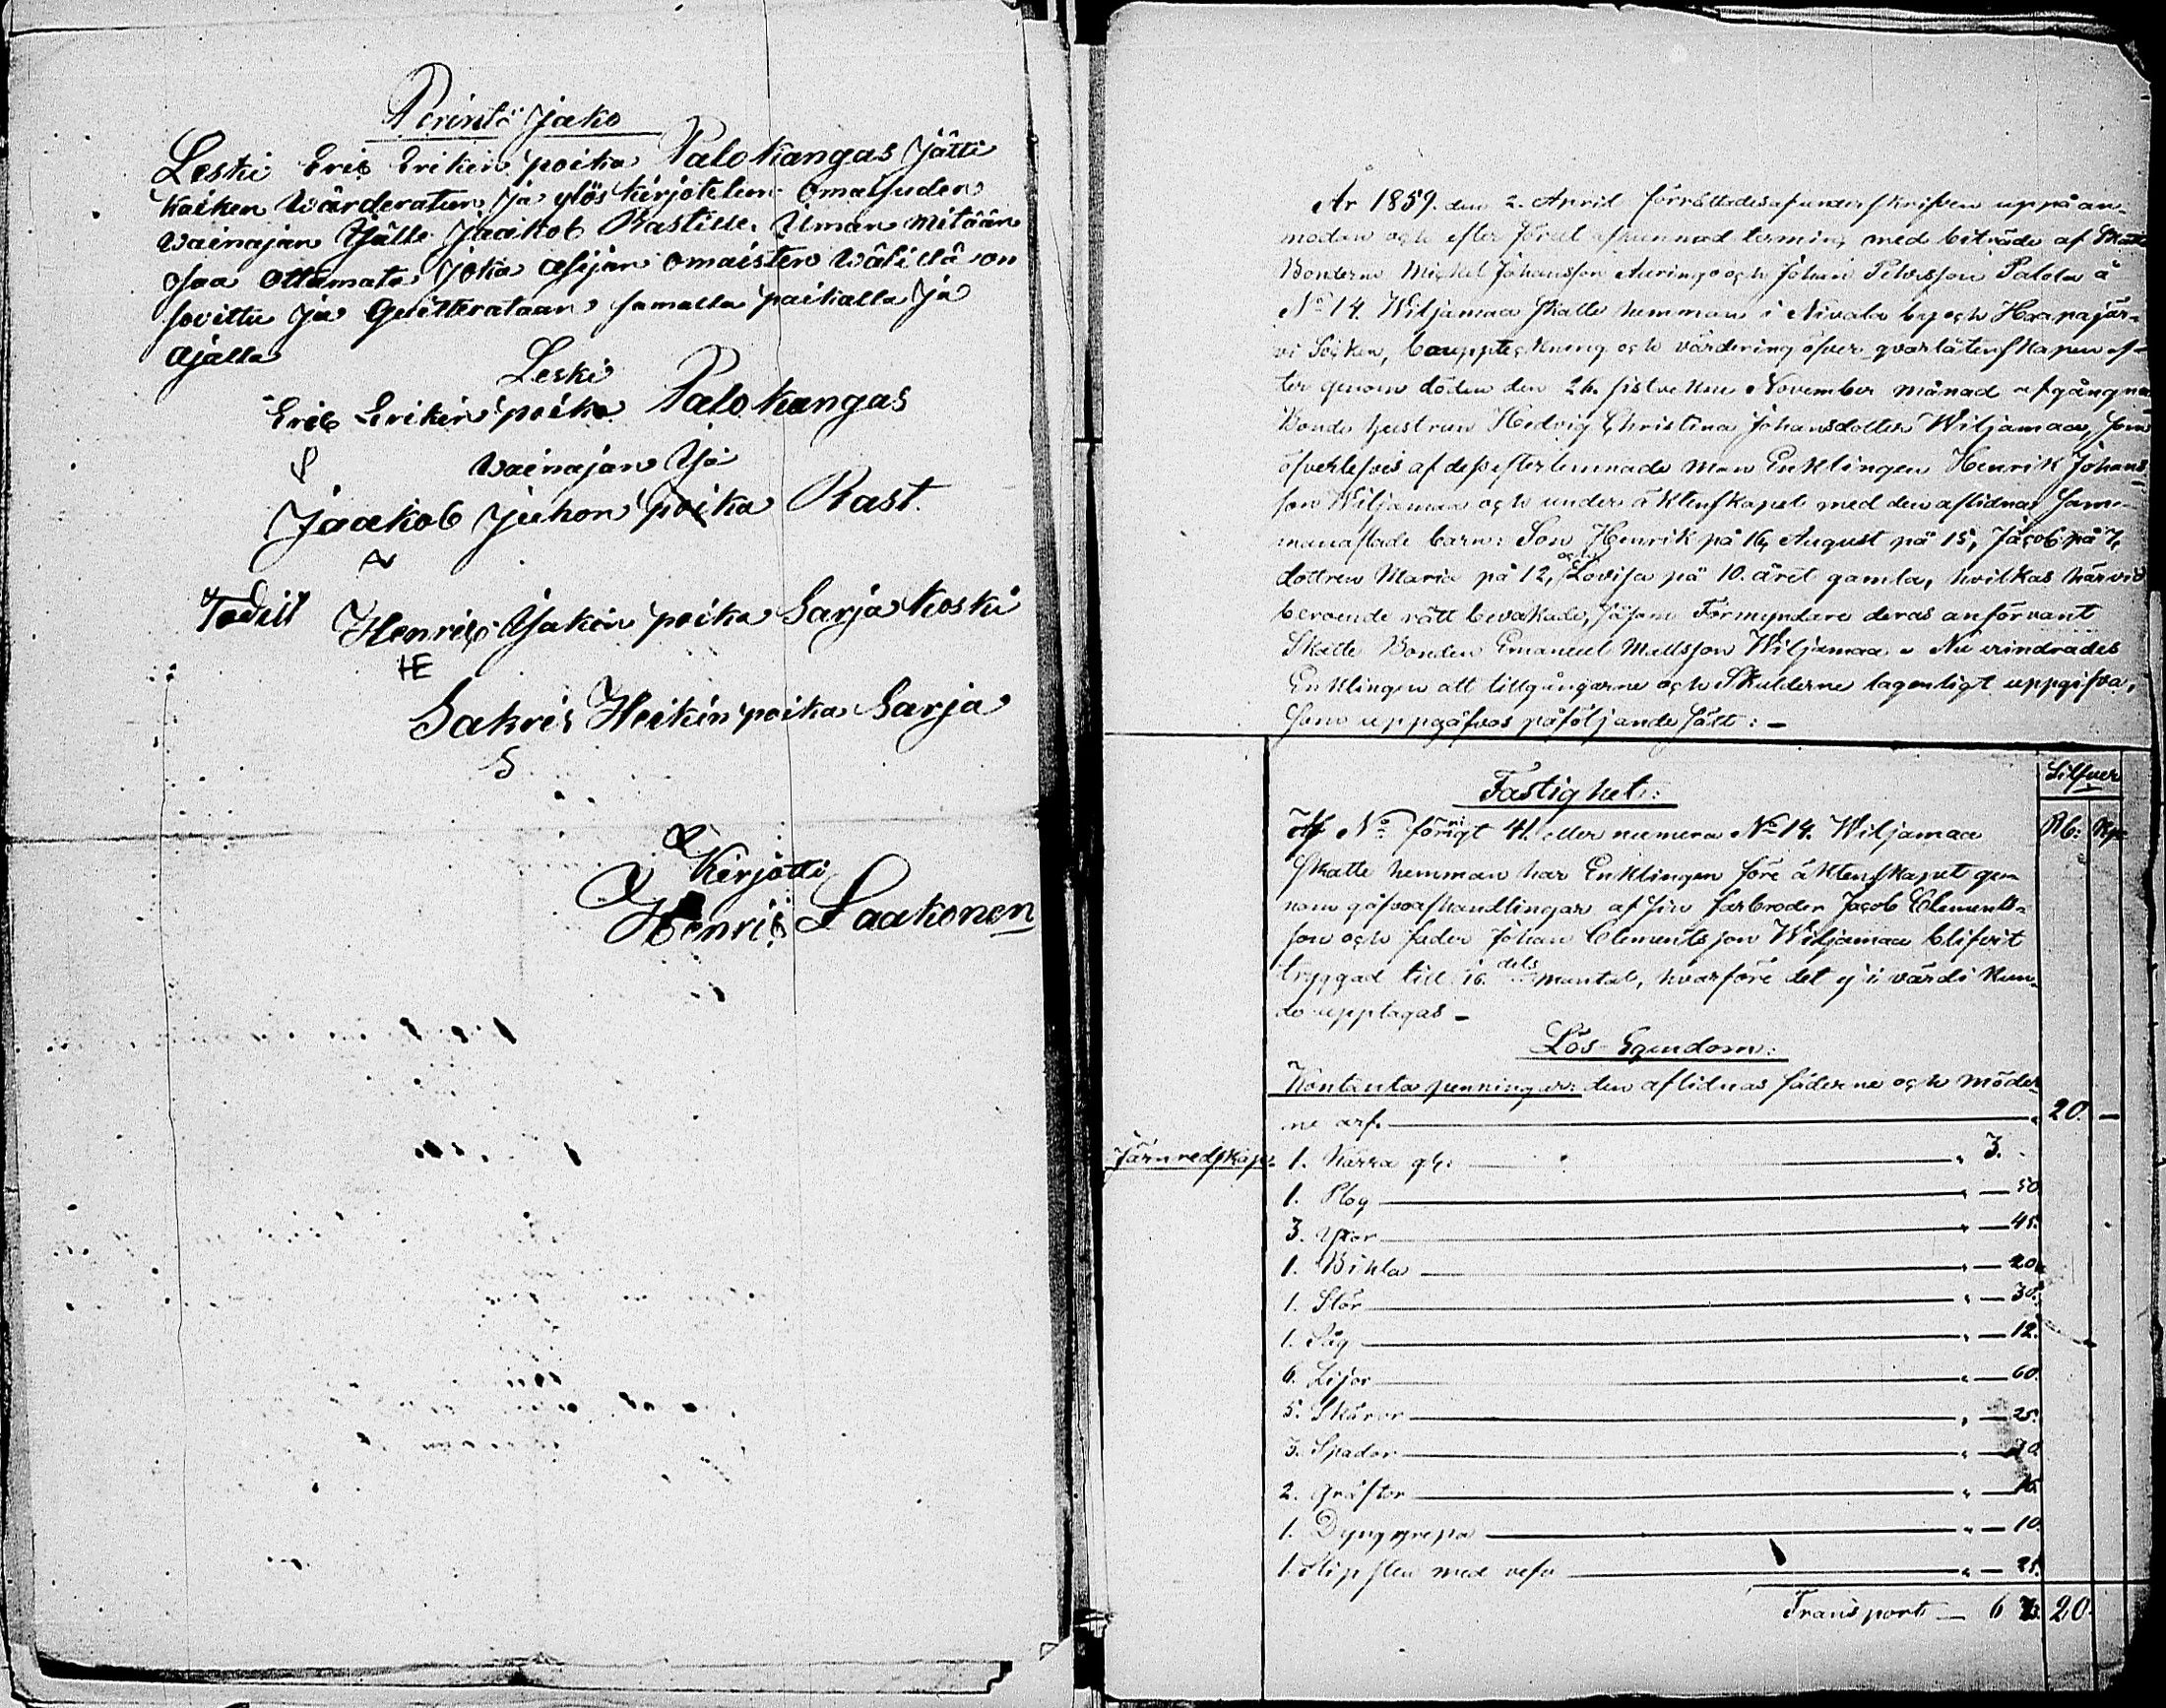 Perintö Jako
Leski Eric Erikin poika Palokangas Jätti
kaiken Wärderatun ja ylös kirjotetun Omaisuden
Wainajan Isälle Jaakob Rastille. Uman mitään
osaa Ottamata Joka Asijan omaisten Wälillä on
sovittu Ja Quitterataan samalla paikalla Ja
Ajalla
Leski
Eric Erikin poika Palokangas
Wainajan Isä
Jaakob Juhon poika Rast.
Todist Henric Jakon poika Sarja koski
HE
Sakris Heikin poika Sarja
S
Kirjotti
Henric Laakonen
År 1859. den 2. April förrättades af underskrifven uppå an-
modan och efter förut afkunnad termin, med biträde af Skatte
Bönderne Michel Johansson Auringo och Johan Petersson Palola å
No 14. Wiljamaa Skatte hemman i Nivala by och Haapajär-
vi Socken, bouppteckning och värdering öfver qvarlåtenskapen ef-
ter genom döden den 26. sistvekne November månad afgångna
Bonde hustrun Hedvig Christina Johansdotter Wiljamaa, som
öfverlefves af dess efterlemnade man Enklingen Henrik Johans-
son Wiljamaa och under äktenskapet med den aflidna sam-
manaflade barn: Son Henrik på 16, August på 15, Jacob på 7,
dottren Maria på 12, och Lovisa på 10. året gamla, hvilkas härvid
beroende rätt bevakade, såsom Förmyndare deras anförvant
Skatte Bonden Emanuel Mattsson Wiljamaa. Nu erindrades
Enklingen att tillgångarne och Skulderne lagenligt uppgifva,
som uppgåfvos på följande sätt: -
Silfver
Fastighet:
Rb: Kp:
Af No förrigt 41. eller numera No 14. Wiljamaa
Skatte hemman har Enklingen före äktenskapet ge-
nom gåfvoafhandlingar af sin farbroder Jacob Clements-
son och fader Johan Clementsson Wiljamaa blifvit
tryggad till 16. dels mantal, hvarföre det ej i värdi kun-
de upptagas -
Lös-Egendom:
Kontanta penningar: den aflidnas fäderne och möder-
ne arf. " 20. —
Järnredskap: 1. Kärra " 3. -
1. Plog " — 50
3. Yxor " — 45.
1. Bihla " — 20.
1. Stör " — 30.
1. Såg " — 12.
6. Lijor " — 60.
5. Skäror " — 25.
3. Spador " —
2. Gräftor " —
1. Dynggrepa " — 10.
1. Slipsten med vefv " — 25.
Transport — 6 20.